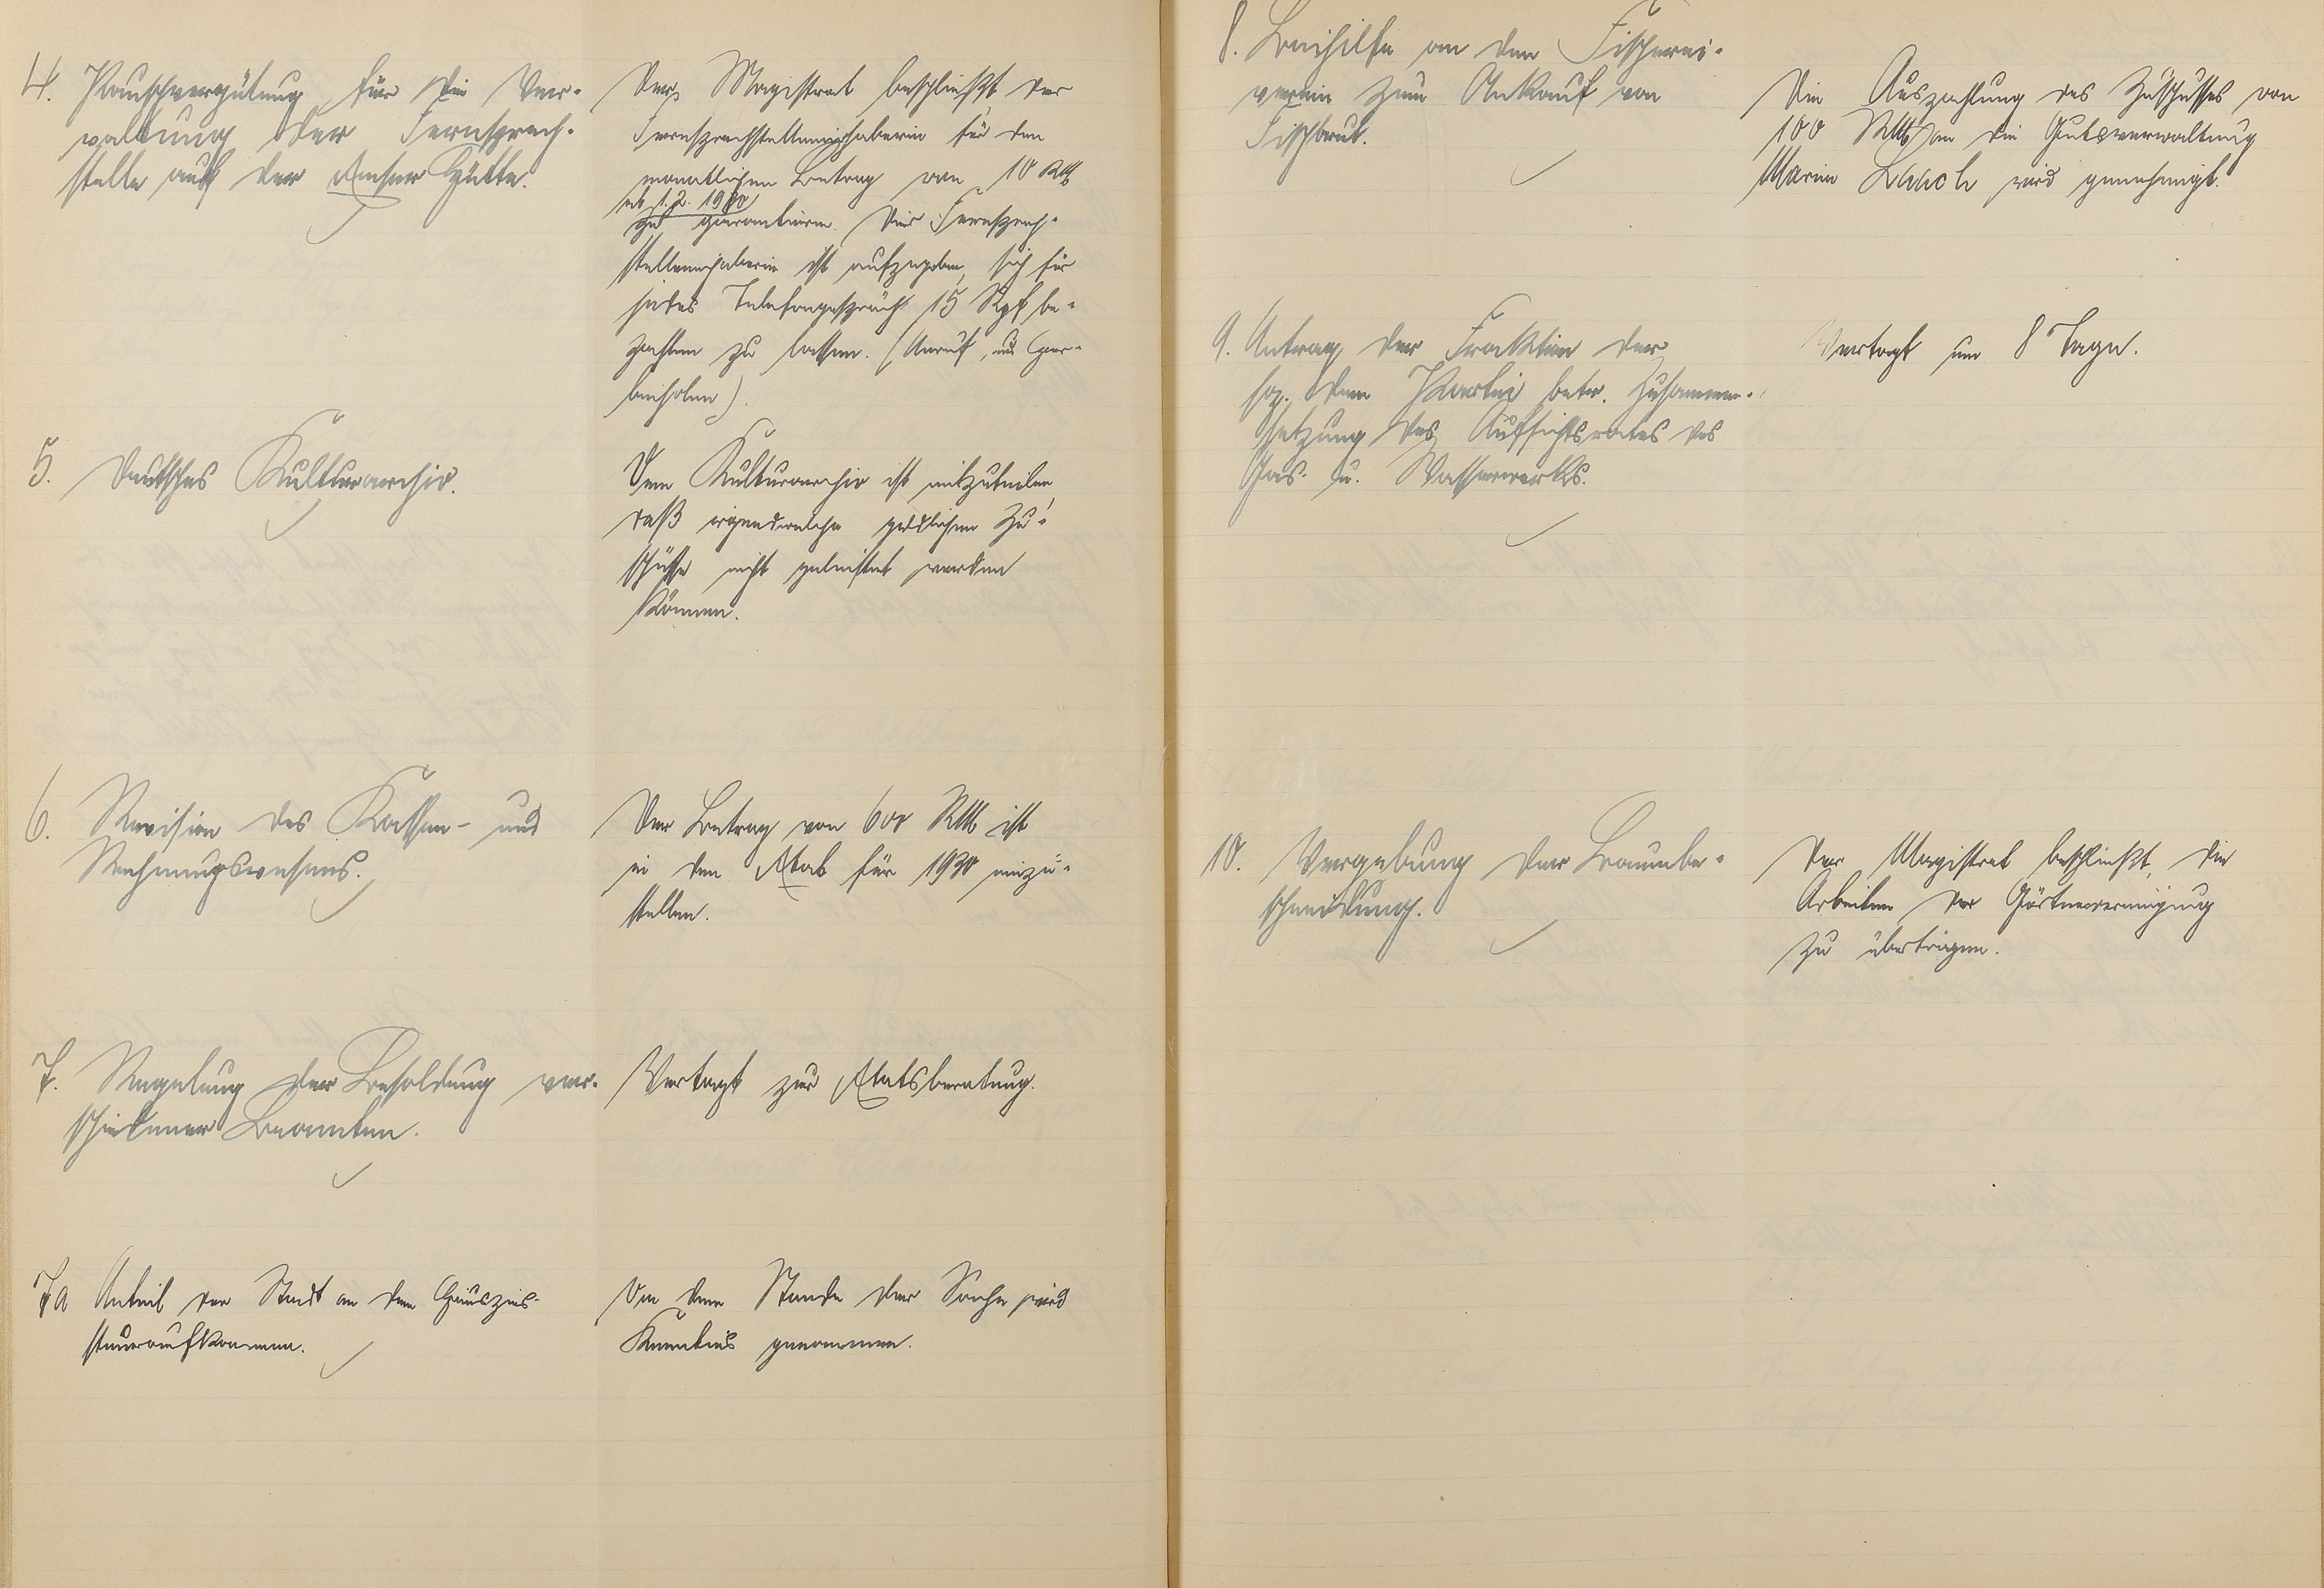 4. Pauschvergütung für die Ver-
waltung der Fernsprech-
stelle auf der Emser Hütte.
Der Magistrat beschließt der
Fernsprechstelleninhaberin für den
monatlichen Betrag von 10 RM
ab 1.2. 1930
zu garantieren. Der Fernsprech-
stelleninhaberin ist aufzugeben, sich für
jedes Telefongespräch 15 Rpf be-
zahlen zu lassen. (Anruf, und Her-
beiholen).
5. Deutsches Kulturarchiv.
Dem Kulturarchiv ist mitzuteilen,
daß irgendwelche geldlichen Zu-
schüsse nicht geleistet werden
können.
6. Revision des Kassen- und
Rechnungswesens.
Der Betrag von 600 RM ist
in den Etat für 1930 einzu-
stellen.
7. Regelung der Besoldung ver-
schiedener Beamten.
Vertagt zur Etatsberatung.
7a Anteil der Stadt an dem Hauszins-
steueraufkommen.
Von dem Stande der Sache wird
Kenntnis genommen.
8. Beihilfe an den Fischerei-
verein zum Ankauf von
Fischbrut.
Die Auszahlung des Zuschusses von
100 RM an die Gutsverwaltung
Maria Laach wird genehmigt.
9. Antrag der Fraktion der
soz. dem Partei betr. Zusammen-
setzung des Aufsichtsrates des
Gas- u. Wasserwerks.
Vertagt um 8 Tage.
10. Vergebung der Baumbe-
schneidung.
Der Magistrat beschließt, die
Arbeiten der Gärtnervereinigung
zu übertragen.